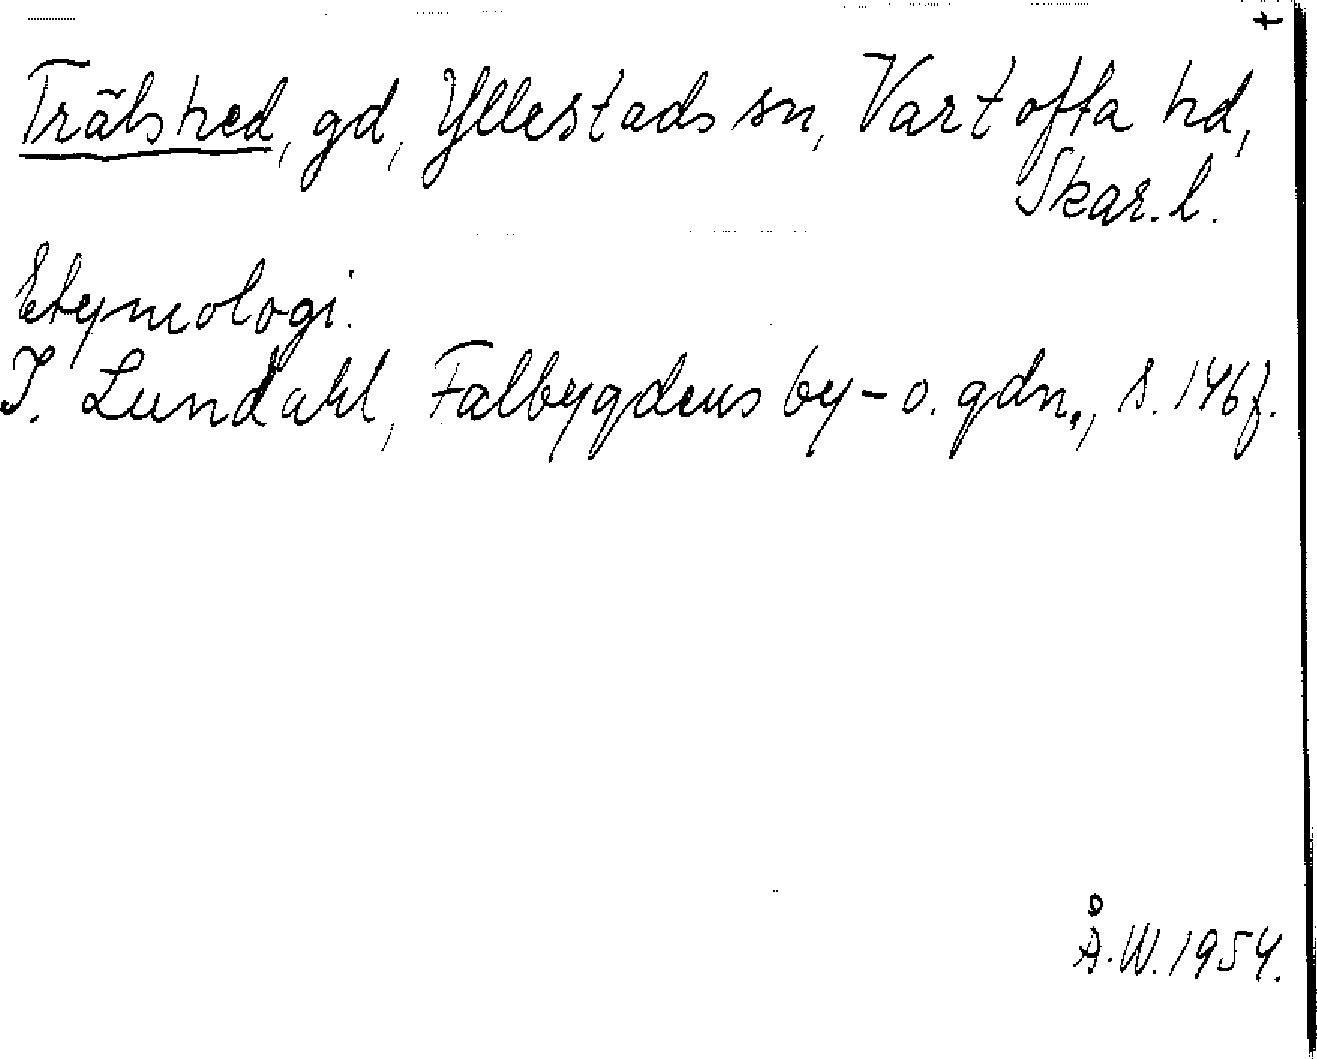 t
Trälshed, gd, Yllestads sn, Vartofta hd,
Skar. l.
Etymologi.
I. Lundahl, Falbygdens by- o. gdn., s. 146f.
Å. W. 1954.